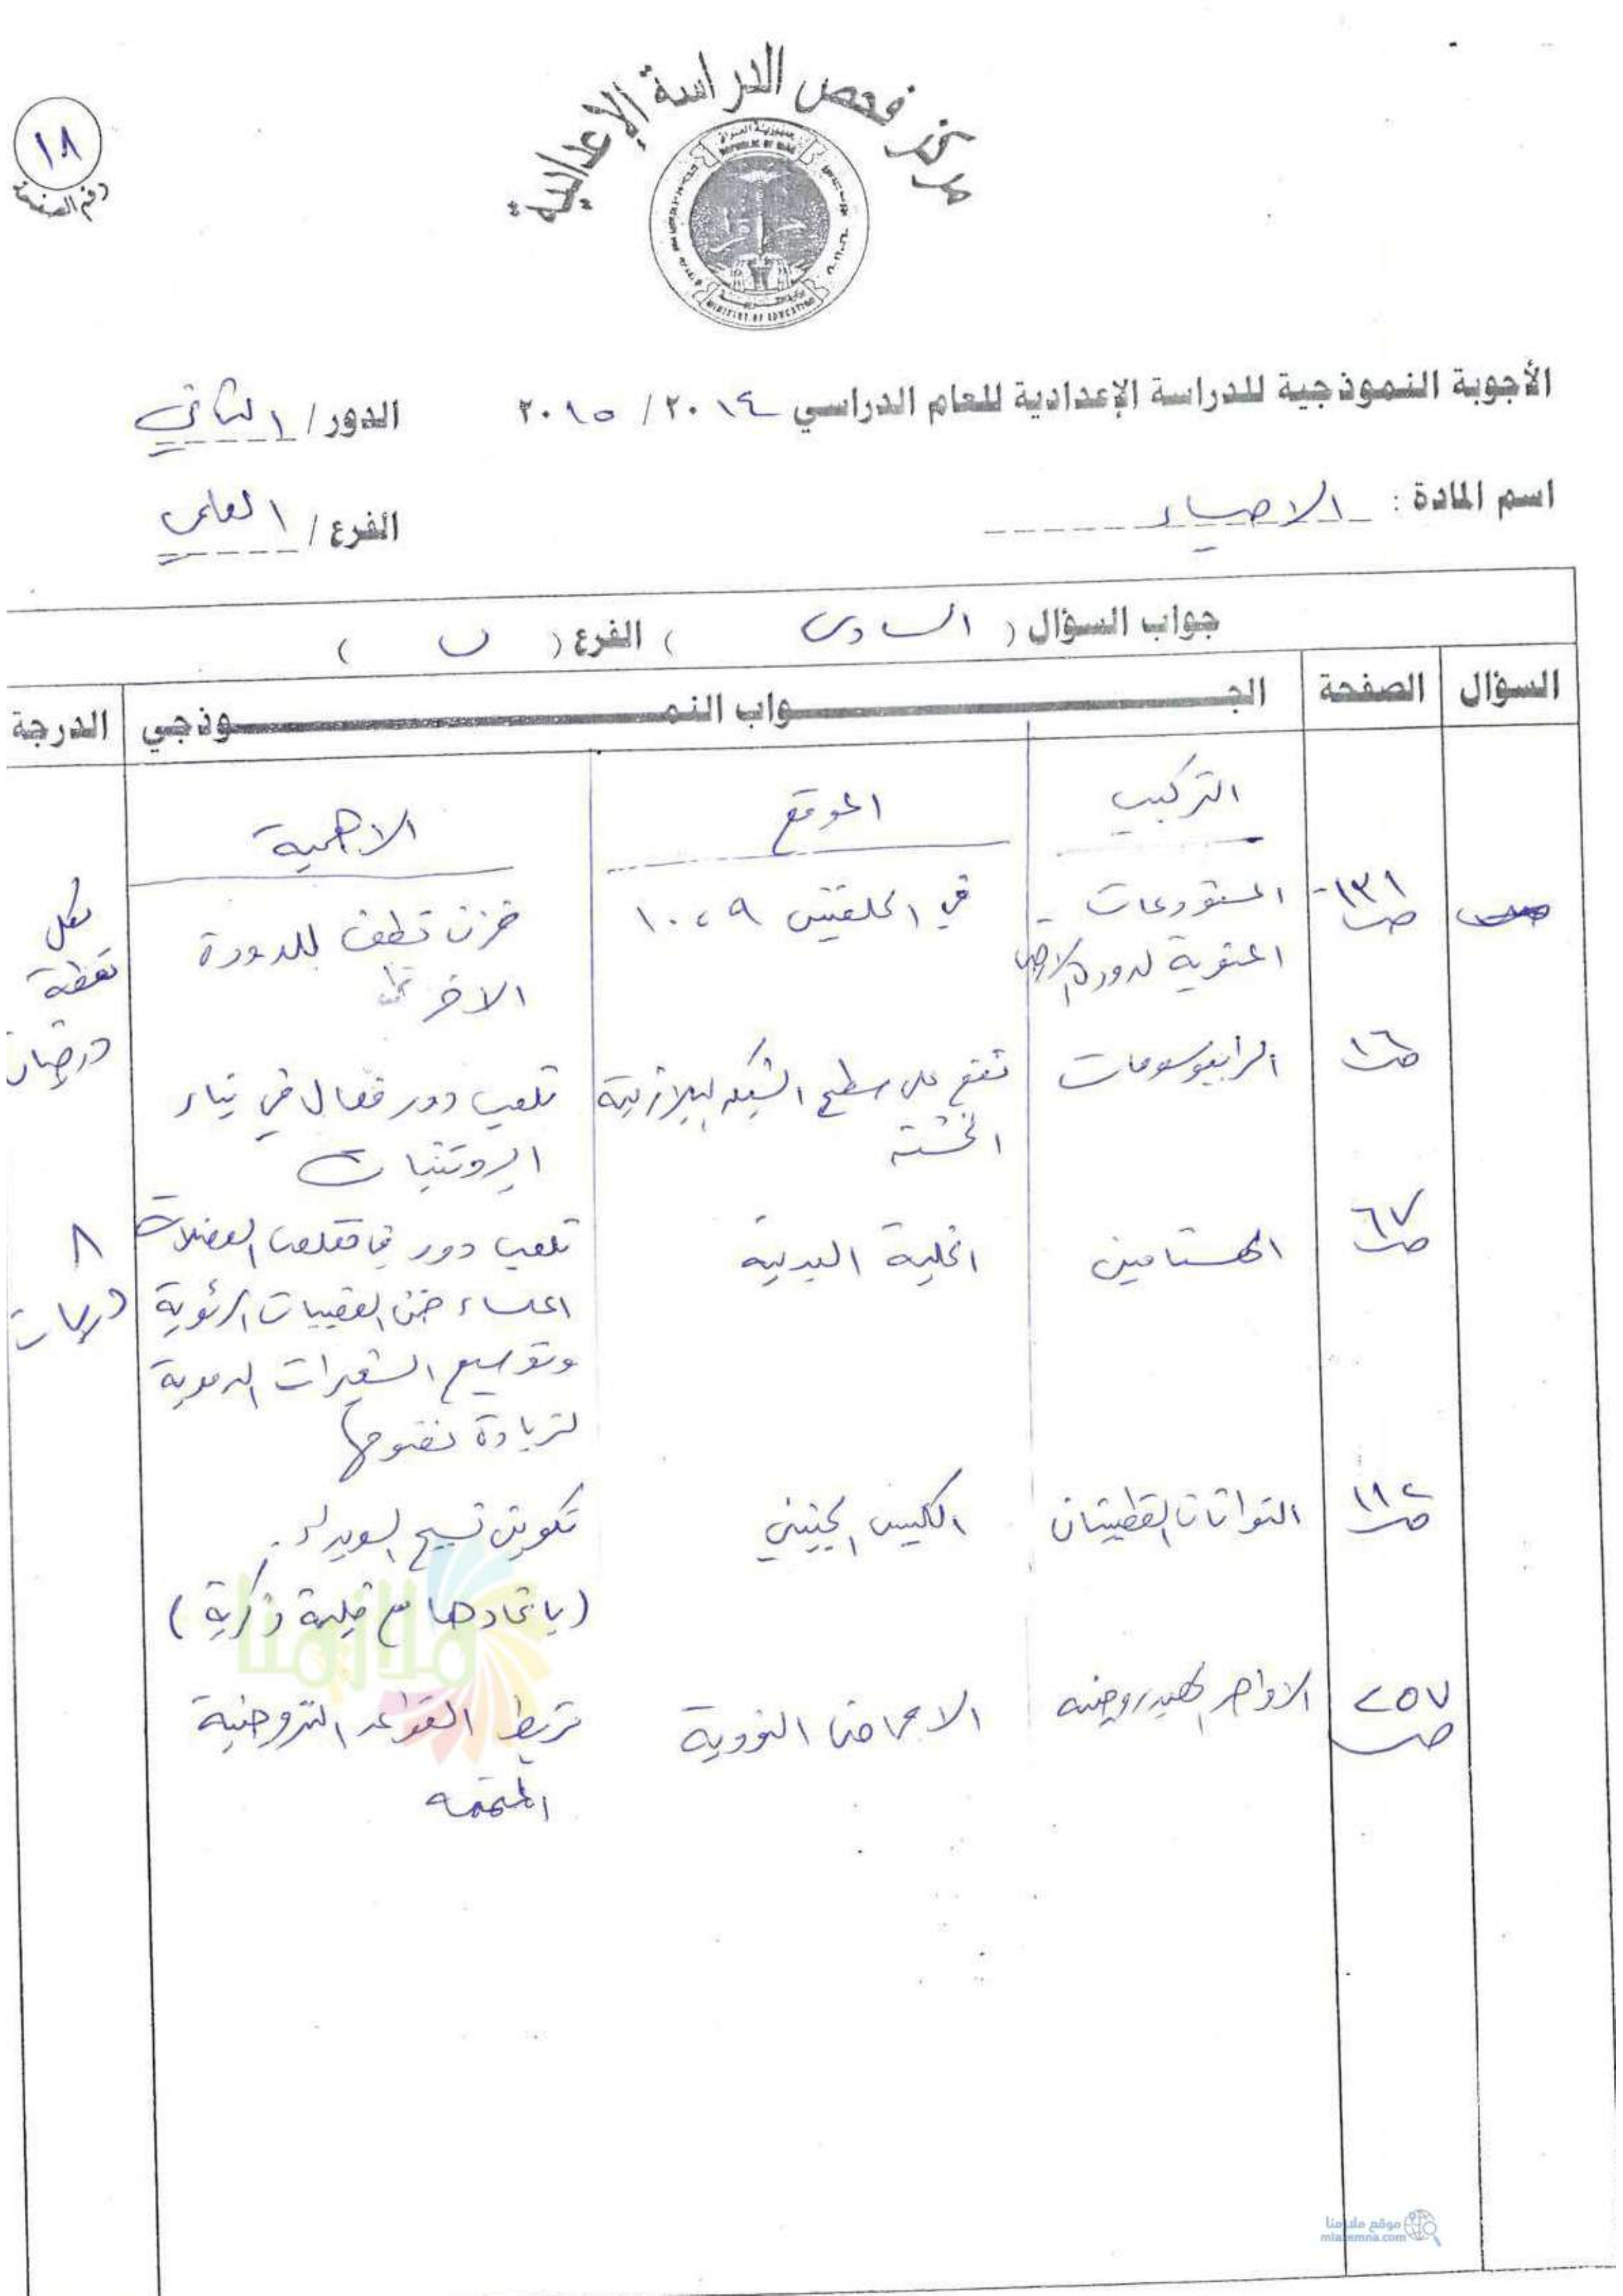 ١٨
رقم الصفحة
مركز فحص الدراسة الإعدادية
جمهورية العراق
REPUBLIC OF IRAQ
MINISTRY OF EDUCATION
الأجوبة النموذجية للدراسة الإعدادية للعام الدراسي ٢٠١٤ / ٢٠١٥ الدور / الثاني
اسم المادة : الاحياء الفرع / العلمي
جواب السؤال ( السادس ) الفرع ( ب )
السؤال الصفحة الجـــواب النمـــوذجي الدرجة
التركيب الموقع الاهمية
ص١٣١ المستودعات المنوية لدودة الارض في الحلقتين ٩ ، ١٠ خزن نطف للدودة الاخرى
لكل نقطة درجتان
ص١٦ الرايبوسومات تقع على سطح الشبكه البلازمية الخشنة تلعب دور فعال في بناء البروتينات
ص٦٧ الهستامين الخلية البدينة تلعب دور في تقلص العضلات
الملساء ضمن القصيبات الرئوية
وتوسيع الشعيرات الدموية
لزيادة نضوحها
٨ درجات
ص١١٢ النواتان القطبيتان الكيس الجنيني تكوين نسيج السويداء .
(باتحادها مع خلية ذكرية)
ص٢٥٧ الاواصر الهيدروجينه الاحماض النووية تربط القواعد النتروجينية
المتممه
ملازمنا
موقع ملازمنا
mlazemna.com